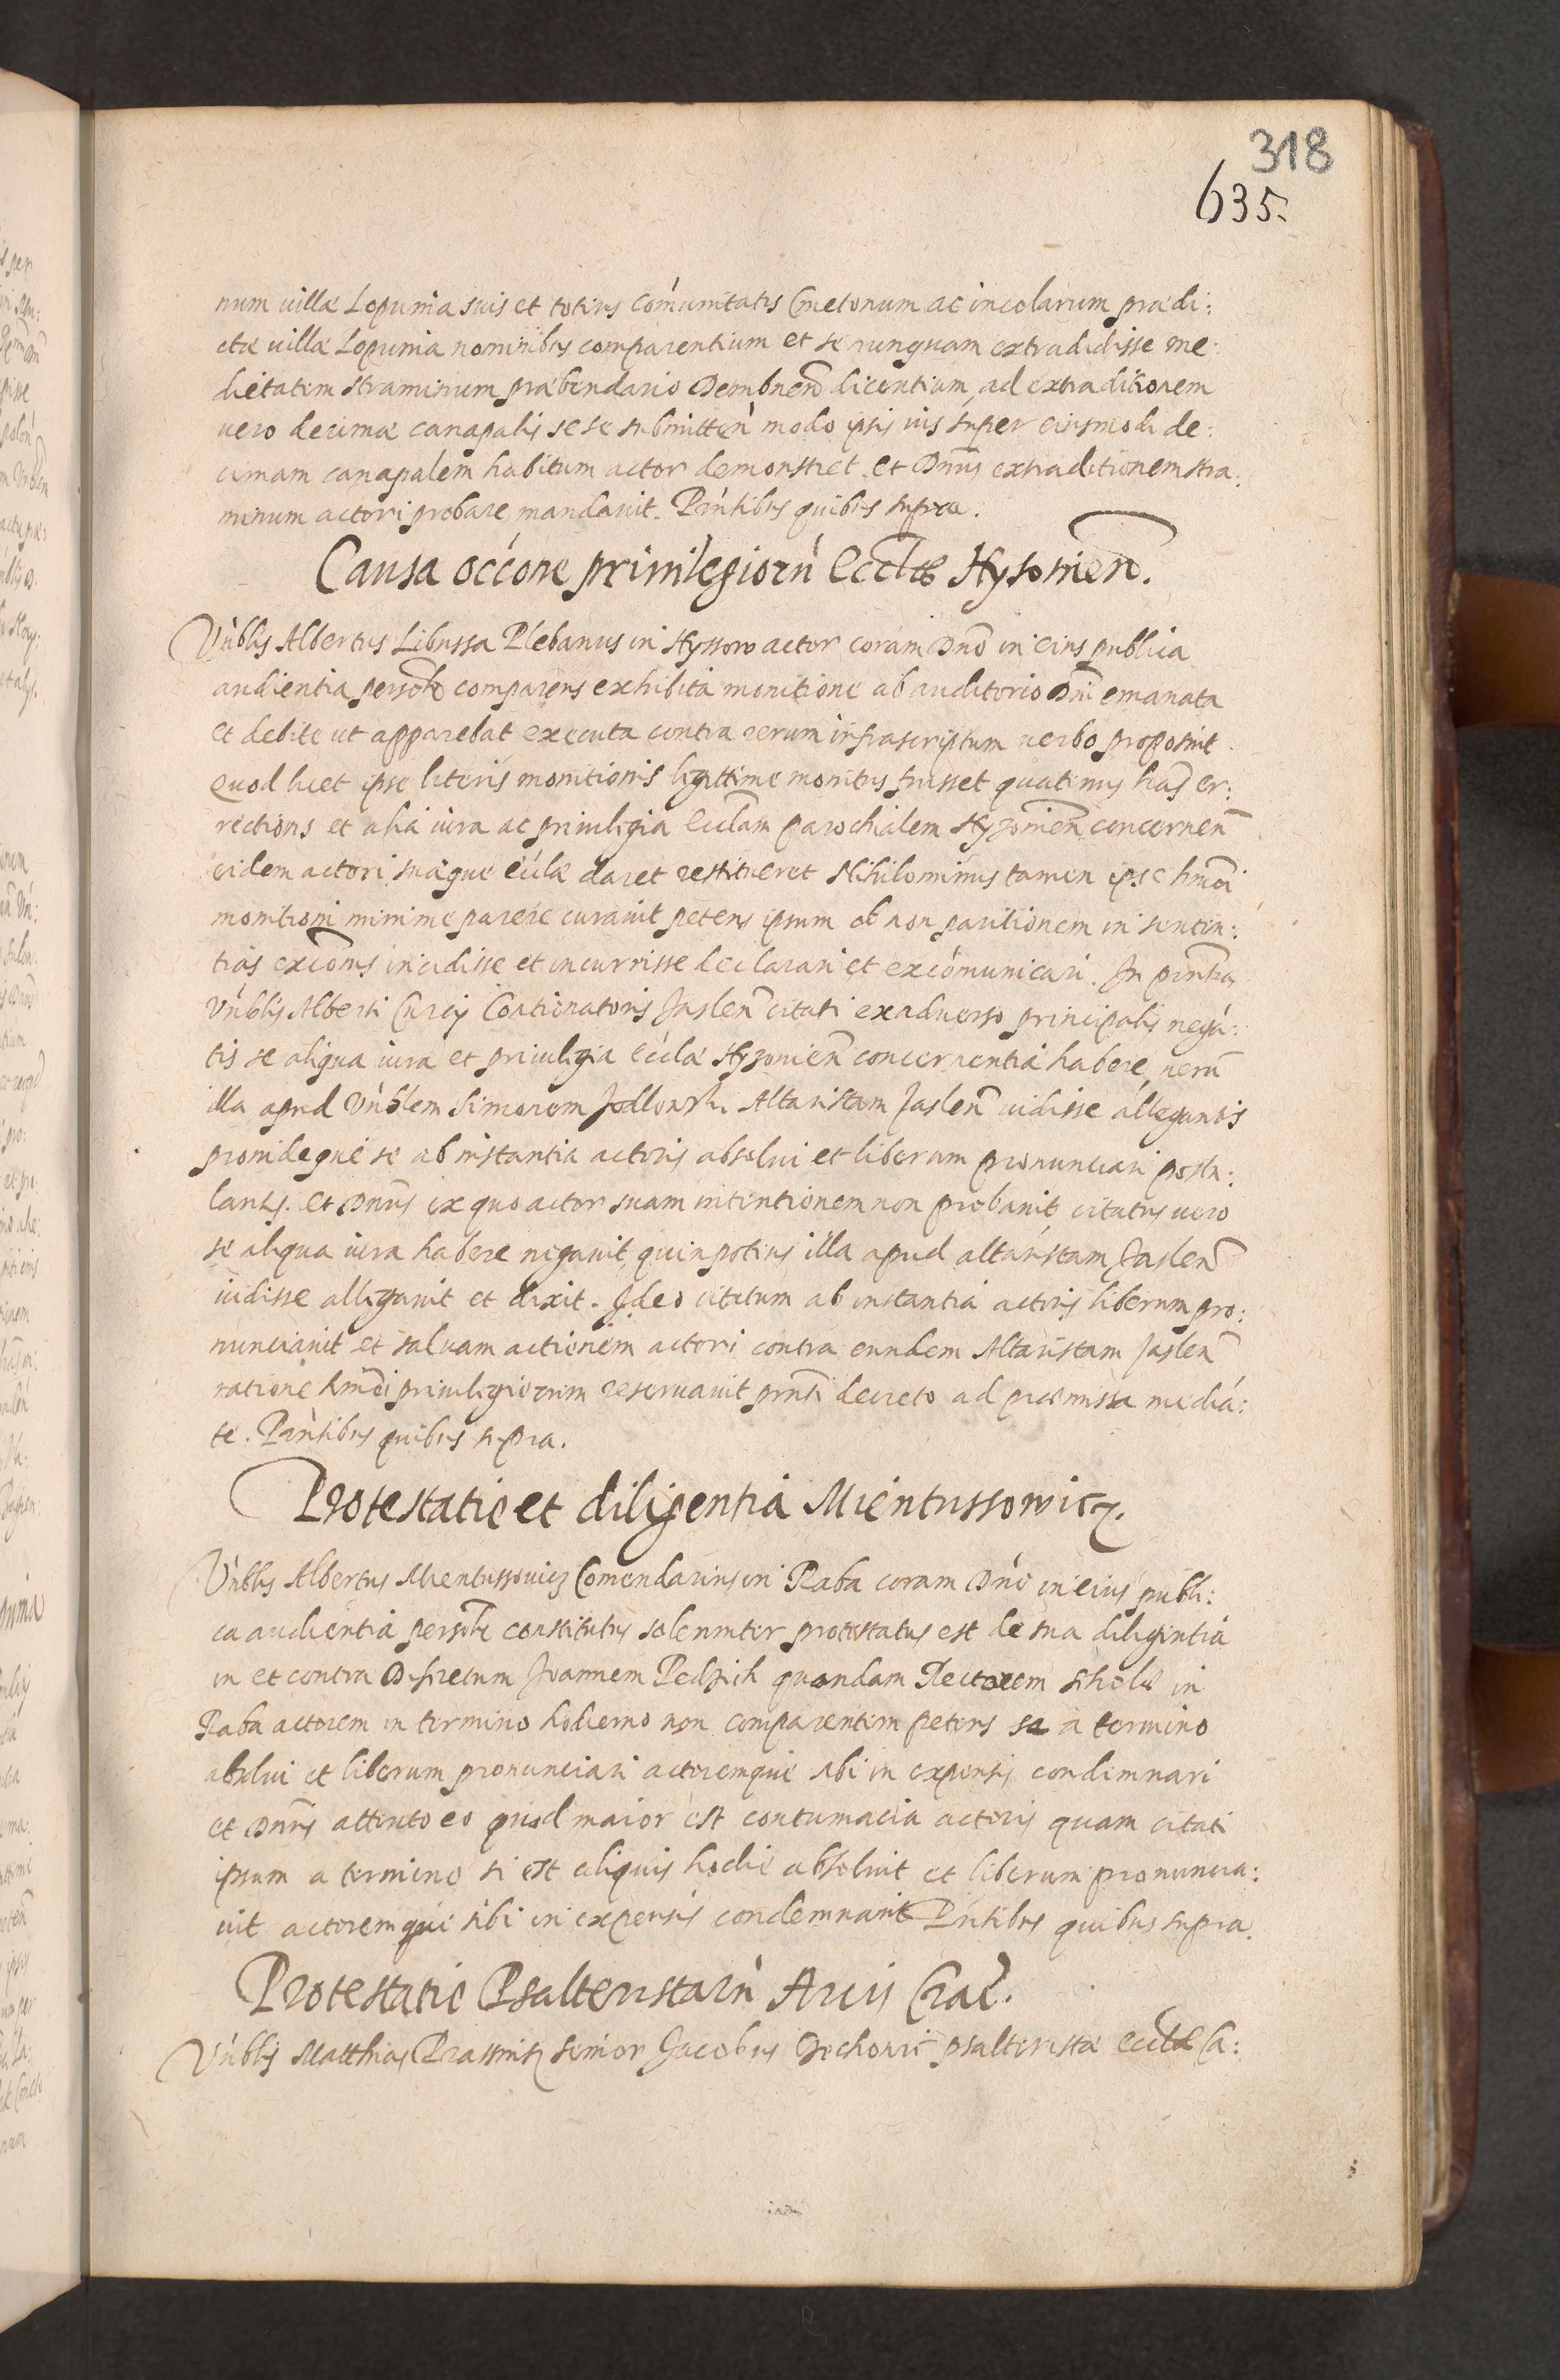 318
635.
num villæ Lopunia suis et totius com̃unitatis Cmetonum ac incolarum prædi:
ctæ villæ Lopunia nominibus comparentium et se nunquam extradidisse me:
dietatem straminum præbendario Dembnen̄ dicentium, ad extraditionem
vero decimæ canapalis sese submitten̄ modo ipsis ius super eiusmodi de:
cimam canapalem habitum actor demonstret. Et Dnūs extraditionem stra:
minum actori probare mandavit. Pr̄ntibus quibus supra.
Causa occ̄one privilegiorū Eccl̄æ Hyzonien̄.
Vn̄blis Albertus Libussa Plebanus in Hyssow actor coram Dn̄o in eius publica
audientia person̄r comparens exhibita monitione ab auditorio Dn̄i emanata
et debite ut apparebat executa contra rerum infrascriptum verbo proposuit
Quod licet ipse literis monitionis legittime monitus fuisset quatenus l̄ras er:
rectionis et alia iura ac privilegia Eccl̄am parochialem Hyzonien̄ concernen̄
eidem actori suæque eccl̄æ daret restitueret Nihilominus tamen ipse hm̄oi
monitioni minime parere curavit petens ipsum ob non paritionem in senten:
tias exc̄onis incidisse et incurrisse declarari et excōmunicari. In pn̄tia
Vn̄blis Alberti Concionatoris Jaslen̄ citati ex adverso principalis negan:
tis se aliqua iura et privilegia eccl̄æ Hyzonien̄ concernentia habere, verū
illa apud Vn̄blem Simonem Jedlowski Altaristam Jaslen̄ vidisse allegantis
proindeque se ab instantia actoris absolvi et liberum pronunciari postu:
lantis. Et Dnūs ex quo actor suam intentionem non probavit citatus vero
se aliqua iura habere negavit, quin potius illa apud altaristam Jaslen̄
vidisse allegavit et dixit. Ideo citatum ab instantia actoris liberum pro:
nunciavit et salvam actionem actori contra eundem Altaristam Jaslen̄
ratione hm̄oi privilegiorum reservavit pn̄ti decreto ad præmissa median:
te. Pr̄ntibus quibus supra.
Protestatio et diligentia Mientussowicz.
Vn̄blis Albertus Mientussowicz Comendarius in Raba coram Dn̄o in eius publi:
ca audientia person̄r constitutus solenniter protestatus est de sua diligentia
in et contra Discretum Joannem Pedzich quondam Rectorem scholæ in
Raba actorem in termino hodierno non comparentem petens se a termino
absolui et liberum pronunciari actoremque sibi in expensis condemnari
et Dnūs attento eo quod maior est contumacia actoris quam citati
ipsum a termino si est aliquis hodie absoluit et liberum pronuncia:
vit actoremque sibi in expensis condemnavit Pn̄tibus quibus supra.
Protestatio Psalteristarū Arcis Crac̄.
Vn̄blis Matthias senior Jacobus psalteristæ eccl̄æ Ca: